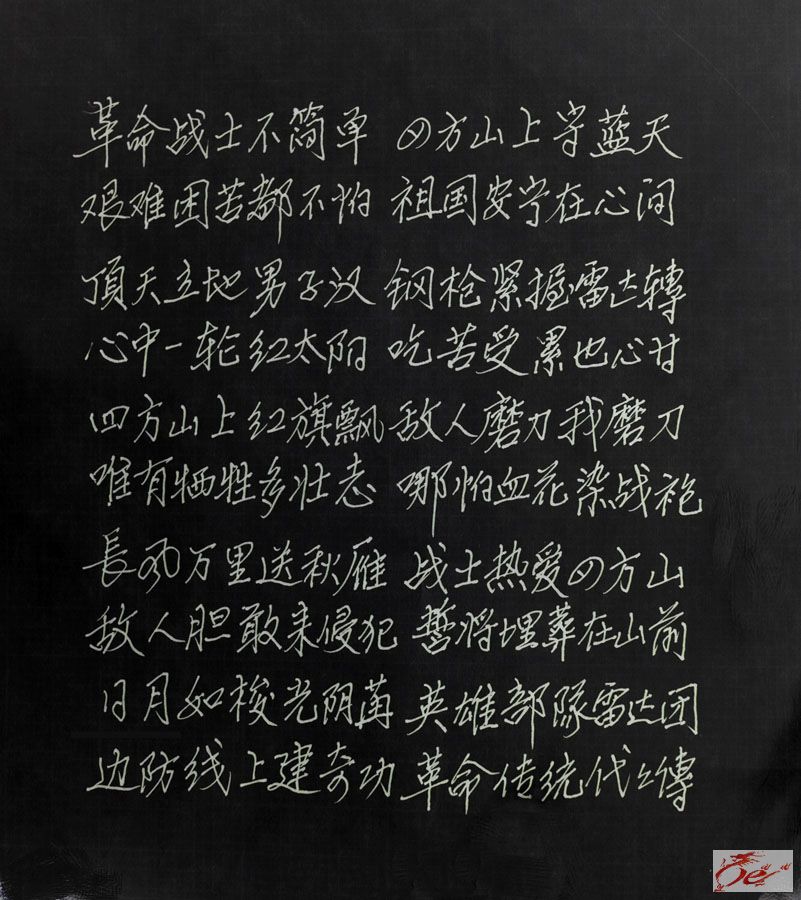 革命战士不简单 四方山上守蓝天
艰难困苦都不怕 祖国安宁在心间
頂天立地男子汉 钢枪紧握雷达轉
心中一轮红太阳 吃苦受累也心甘
四方山上红旗飘 敌人磨刀我磨刀
唯有牺牲多壮志 哪怕血花染战袍
長风万里送秋雁 战士热爱四方山
敌人胆敢来侵犯 誓将埋葬在山前
日月如梭光阴苒 英雄部隊雷达团
边防线上建奇功 革命传统代々傳